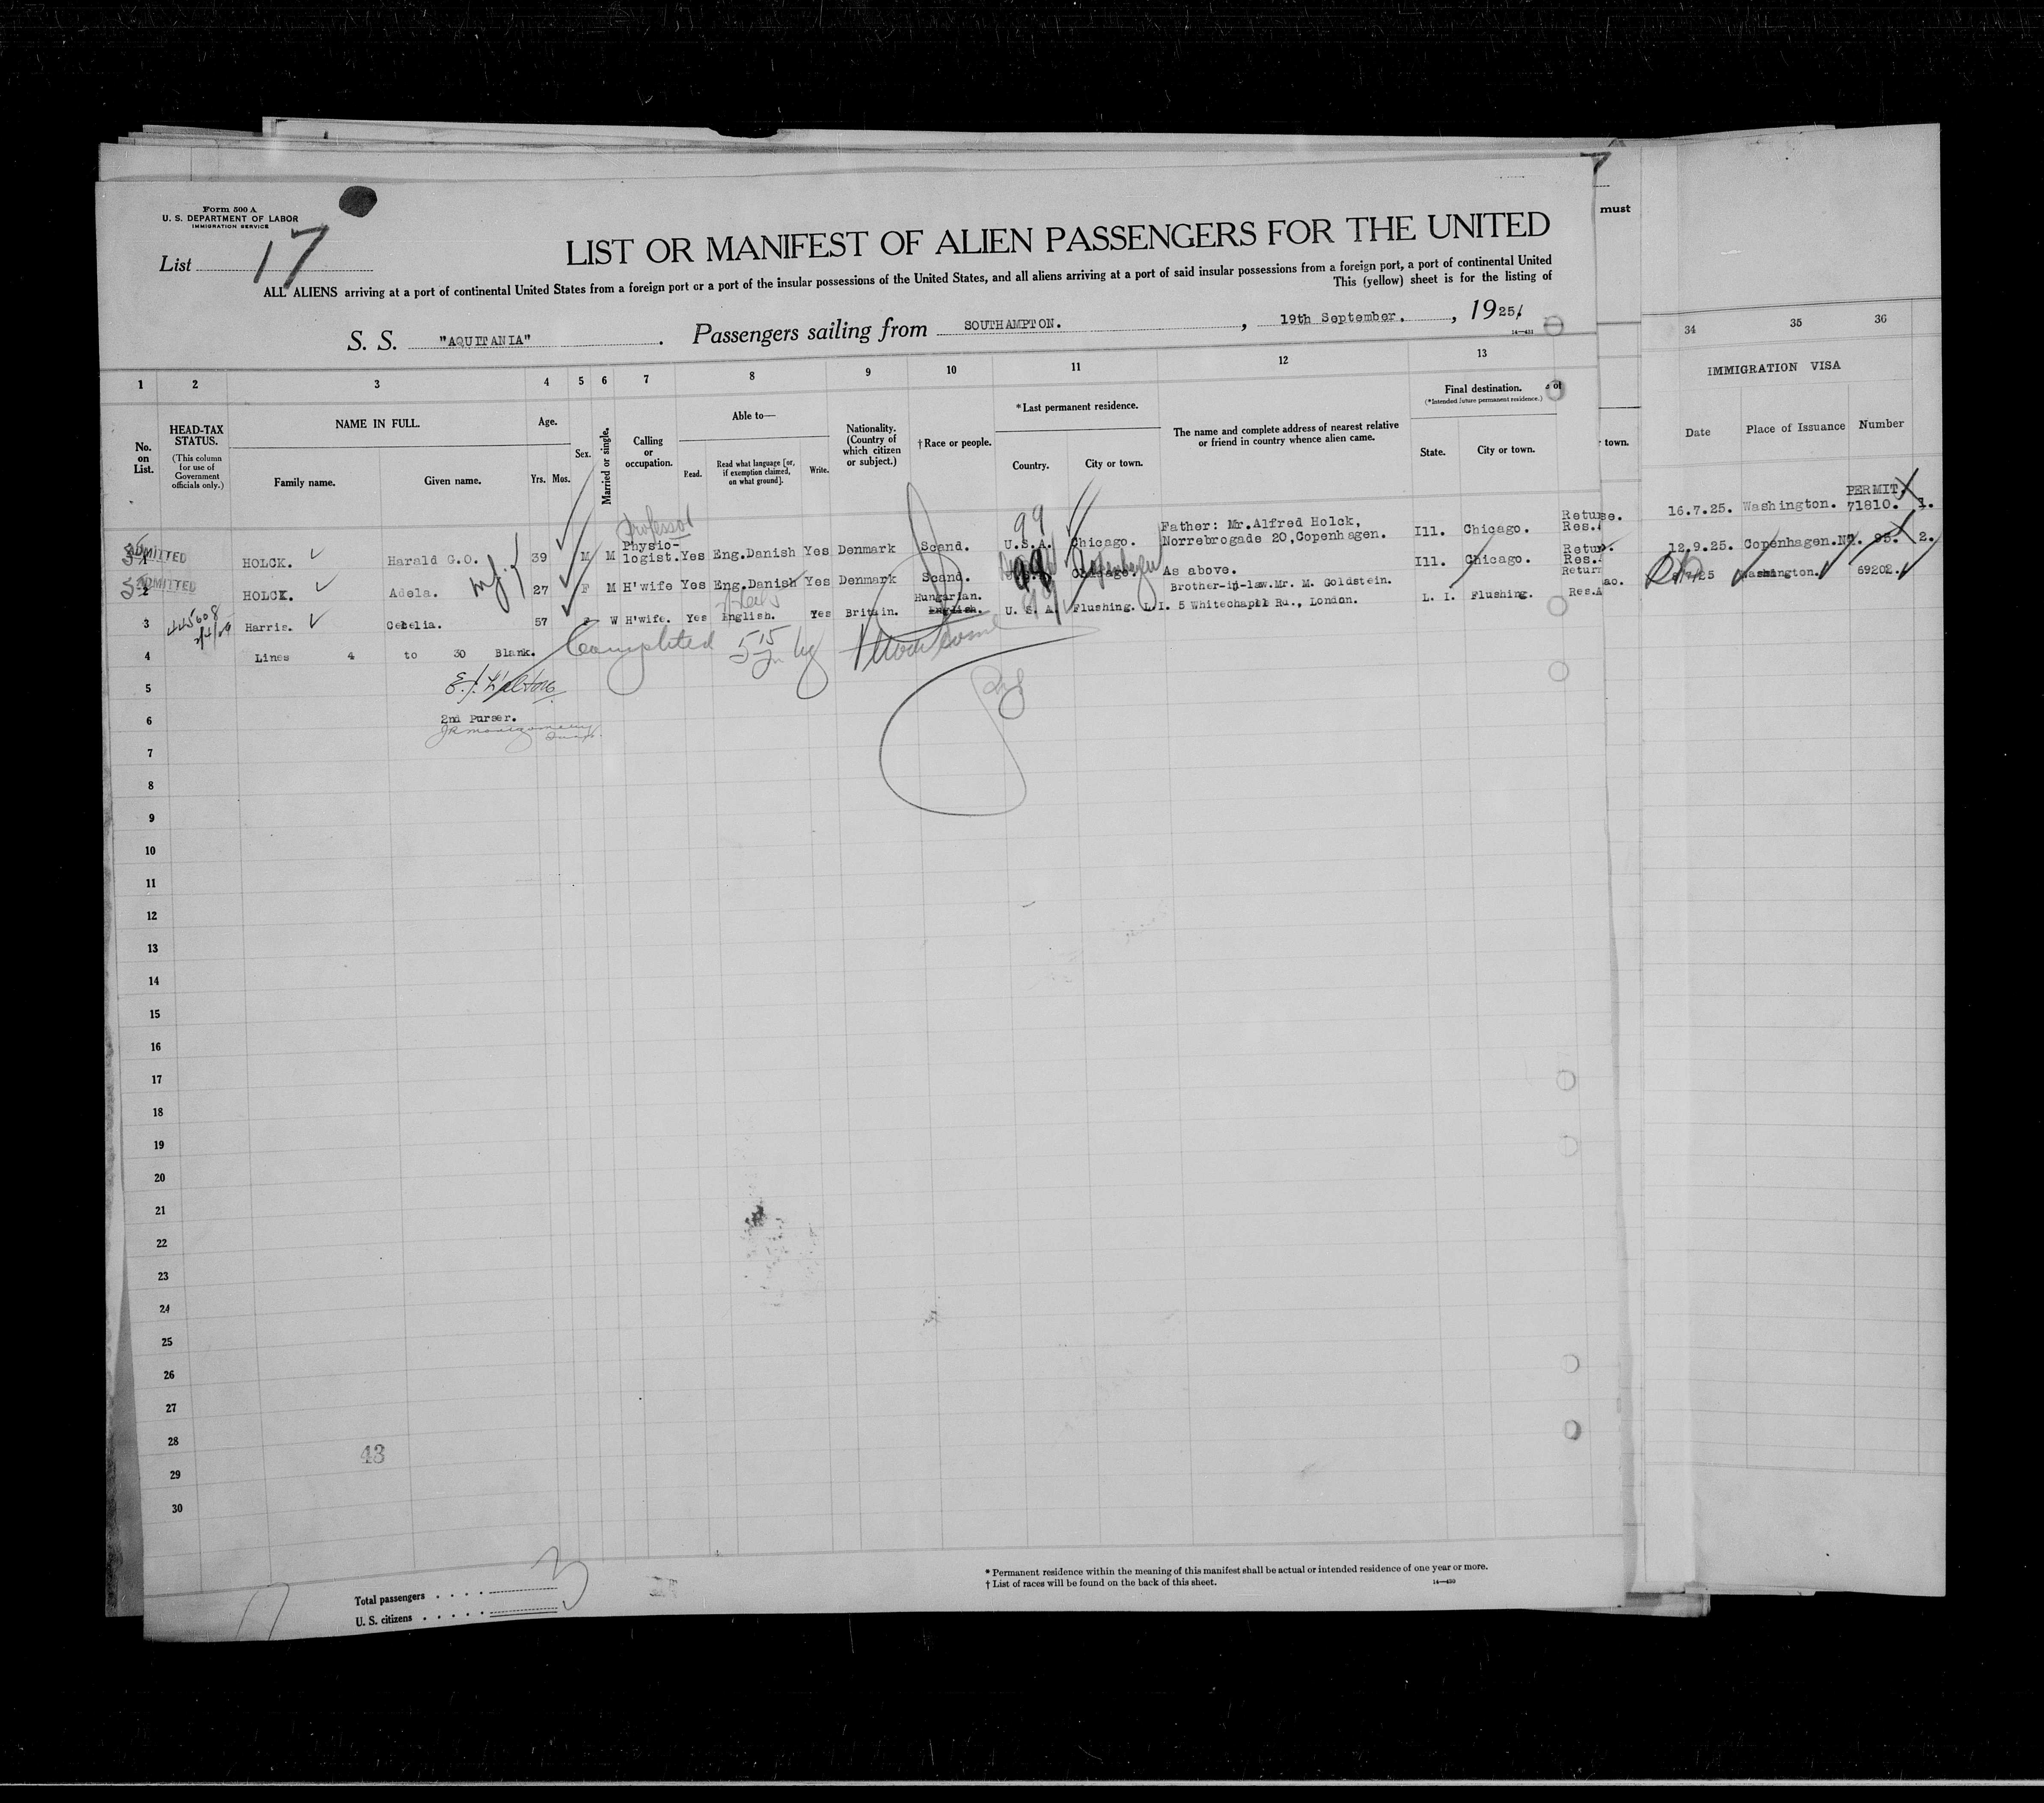 Form 500 A
U. S. DEPARTMENT OF LABOR
IMMIGRATION SERVICE
List 17
LIST OR MANIFEST OF ALIEN PASSENGERS FOR THE UNITED
ALL ALIENS arriving at a port of continental United States from a foreign port or a port of the insular possessions of the United States, and all aliens arriving at a port of said insular possessions from a foreign port, a port of continental United
This (yellow) sheet is for the listing of
must
S. S. "AQUITANIA" . Passengers sailing from SOUTHAMPTON. , 19th September. , 1925
14—431
1 2 3 4 5 6 7 8 9 10 11 12 13 34 35 36
No. on List.
HEAD-TAX STATUS.
(This column for use of Government officials only.)
NAME IN FULL.
Family name. Given name.
Age.
Yrs. Mos.
Sex.
Married or single.
Calling or occupation.
Able to—
Read. Read what language [or, if exemption claimed, on what ground]. Write.
Nationality. (Country of which citizen or subject.)
†Race or people.
*Last permanent residence.
Country. City or town.
The name and complete address of nearest relative or friend in country whence alien came.
Final destination.
(*Intended future permanent residence.)
State. City or town.
town.
IMMIGRATION VISA
Date Place of Issuance Number
Professor
99
1 ADMITTED HOLCK. Harald G.O. 39 M M Physio-logist. Yes Eng.Danish Yes Denmark Scand. U.S.A. Chicago. Father: Mr.Alfred Holck, Norrebrogade 20,Copenhagen. Ill. Chicago. Res. 16.7.25. Washington. PERMIT 71810. 1.
2 ADMITTED HOLCK. Adela. 27 F M H'wife Yes Eng.Danish Yes Denmark Scand. Chicago. Copenhagen As above. Ill. Chicago. Res. 12.9.25. Copenhagen. 2.
3 HARRIS. Cecelia. 57 W H'wife. Yes English. Yes Britain. Hungarian. English. U. S. A. Flushing. L.I. Brother-in-law.Mr. M. Goldstein. 5 Whitechaple Rd., London. L. I. Flushing. Return Res.A Washington. 69202.
4 Lines 4 to 30 Blank. Completed 515
5
2nd Purser.
6
7
8
9
10
11
12
13
14
15
16
17
18
19
20
21
22
23
24
25
26
27
28
43
29
30
Total passengers . . . . 3
U. S. citizens . . . . .
* Permanent residence within the meaning of this manifest shall be actual or intended residence of one year or more.
† List of races will be found on the back of this sheet.
14—430